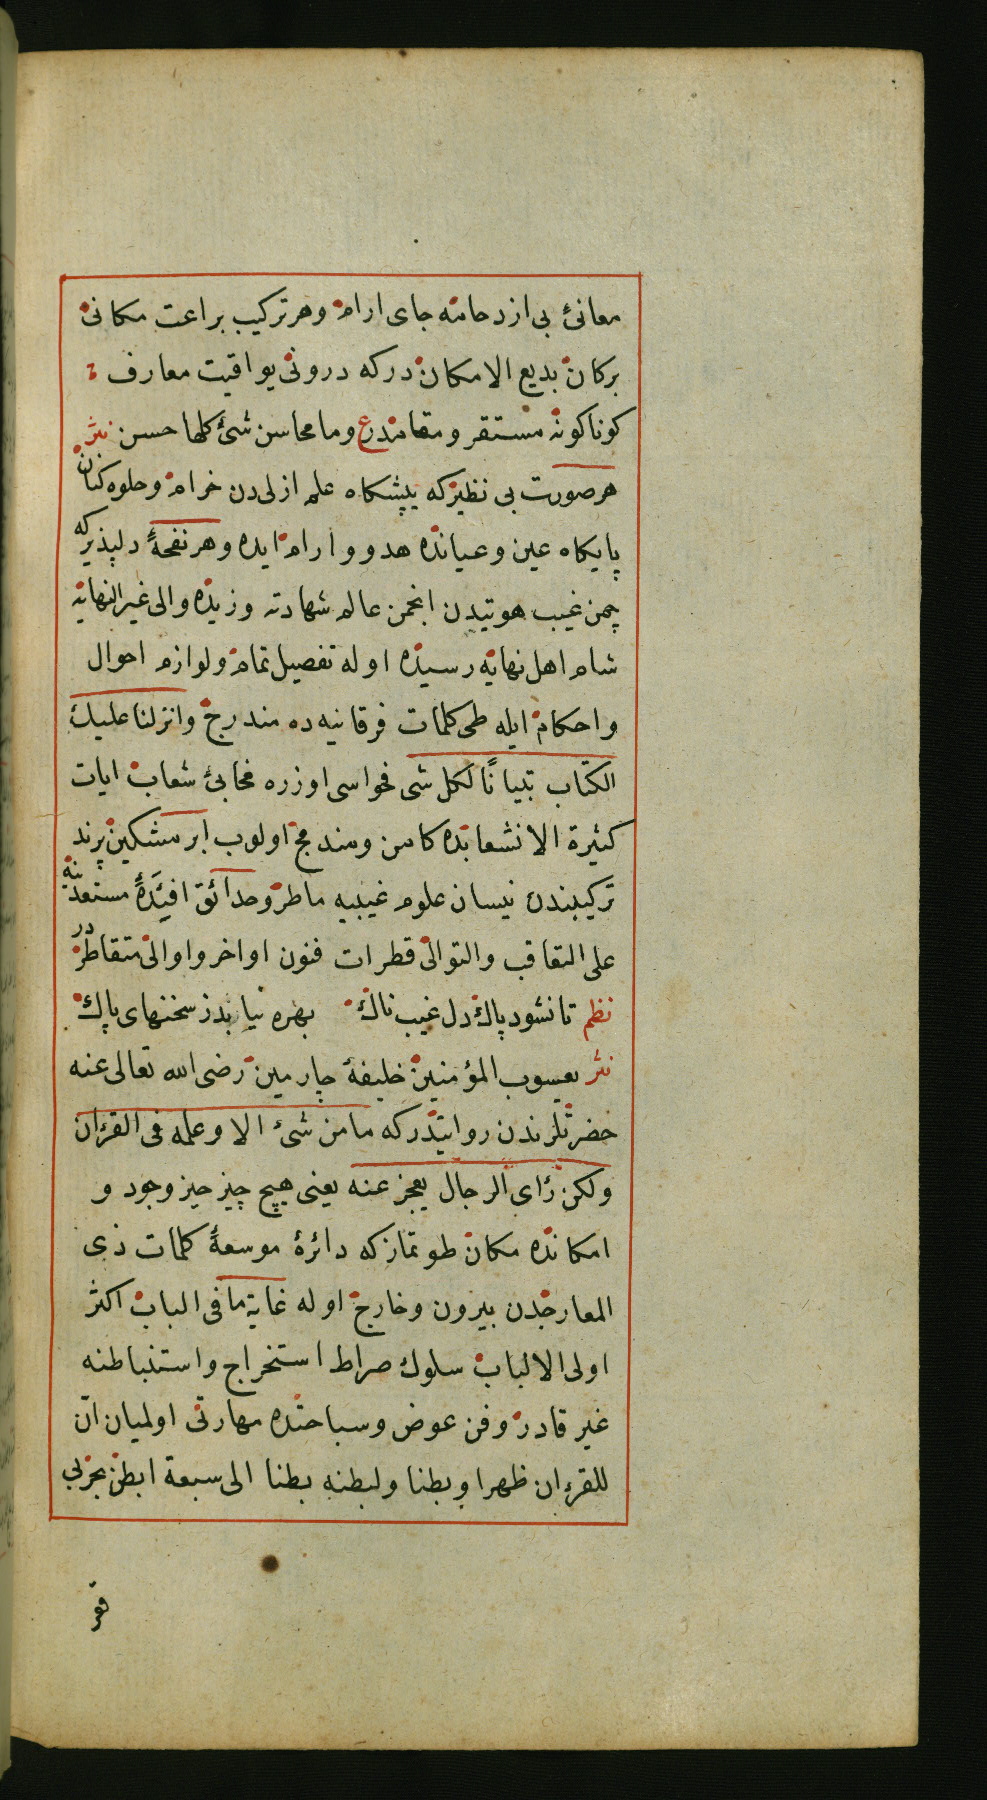 معانئ بی ازدحامه جای ارام وهر ترکیب براعت مکانی
برکان بدیع الامکاندرکه درونی یواقیت معارف
کوناکونه مستقر ومقامدر ع وما محاسن شئ کلها حسن نثر
هر صورت بی نظیرکه پیشکاه علم ازلی دن خرام وجلوه کنان
پایکاه عین وعیانده هدوو ارام ایده وهر نفحهٔ دلپذیر که
چمن غیب هویتیدن انجمن عالم شهادته وزیده والی غیر النهایه
شام اهل نهایه رسیده اوله تفصیل تمام ولوازم احوال
واحکام ایله طی کلمات فرقانیه ده مندرج وانزلنا علیك
الکتاب تبیانًا لکل شی فحواسی اوزره مخابئ شعاب ایات
کثیرة الانشعابده کامن ومندمج اولوب ابر مشکین پرند
ترکیبندن نیسان علوم غیبیه ماطر وحدائق افئدهٔ مستعدینه
علی التعاقب والتوالی قطرات فنون اواخر واوالی متقاطردر
نظم تا نشود پاك دل غیب ناك بهره نیابد ز سخنهای پاك
نثر یعسوب المؤمنین خلیفهٔ چارمین رضی الله تعالی عنه
حضرتلرندن روایتدرکه ما من شئ الا وعلمه فی القرءان
ولکن رٔای الرجال یعجز عنه یعنی هیچ چیز حیز وجود و
امکانده مکان طوتمازکه دائرهٔ موسعهٔ کلمات ذی
المعارجدن بیرون وخارج اوله غایة ما فی الباب اکثر
اولی الالباب سلوك صراط استخراج واستنباطنه
غیر قادر وفن غوض وسباحتده مهارتی اولمیان ان
للقرءان ظهرا وبطنا ولبطنه بطنا الی سبعة ابطن بحربی
قعر